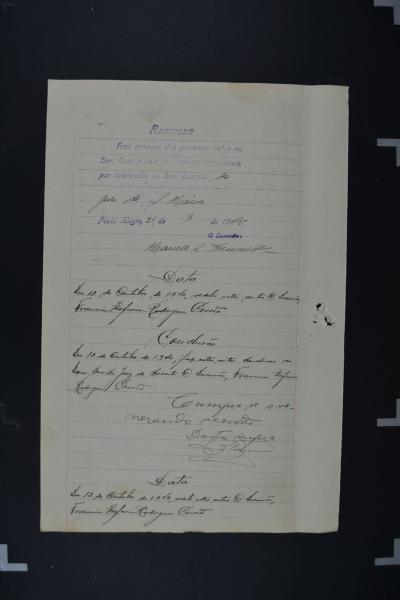 Remessa
Faço remessa dos presentes autos ao
Snr. Doutor Juiz de Comarca
por intermedio do Snr. Escrivão do
juri de
Porto Alegre, 21 de 9 de 1940
O Escrivão
Data
Em 10 de Outubro de 1940, recebi estes autos. O Escrivão,
Francisco Rodrigues Corrêa
Conclusão
Em 10 de Outubro de 1940, faço estes autos conclusos ao
Snr. Dr. Juiz de Direito. O Escrivão, Francisco
Rodrigues Corrêa
Cumpra-se o ve-
nerando acordão.
Data supra
Data
Em 12 de Outubro de 1940, recebi estes autos. O Escrivão,
Francisco Rodrigues Corrêa